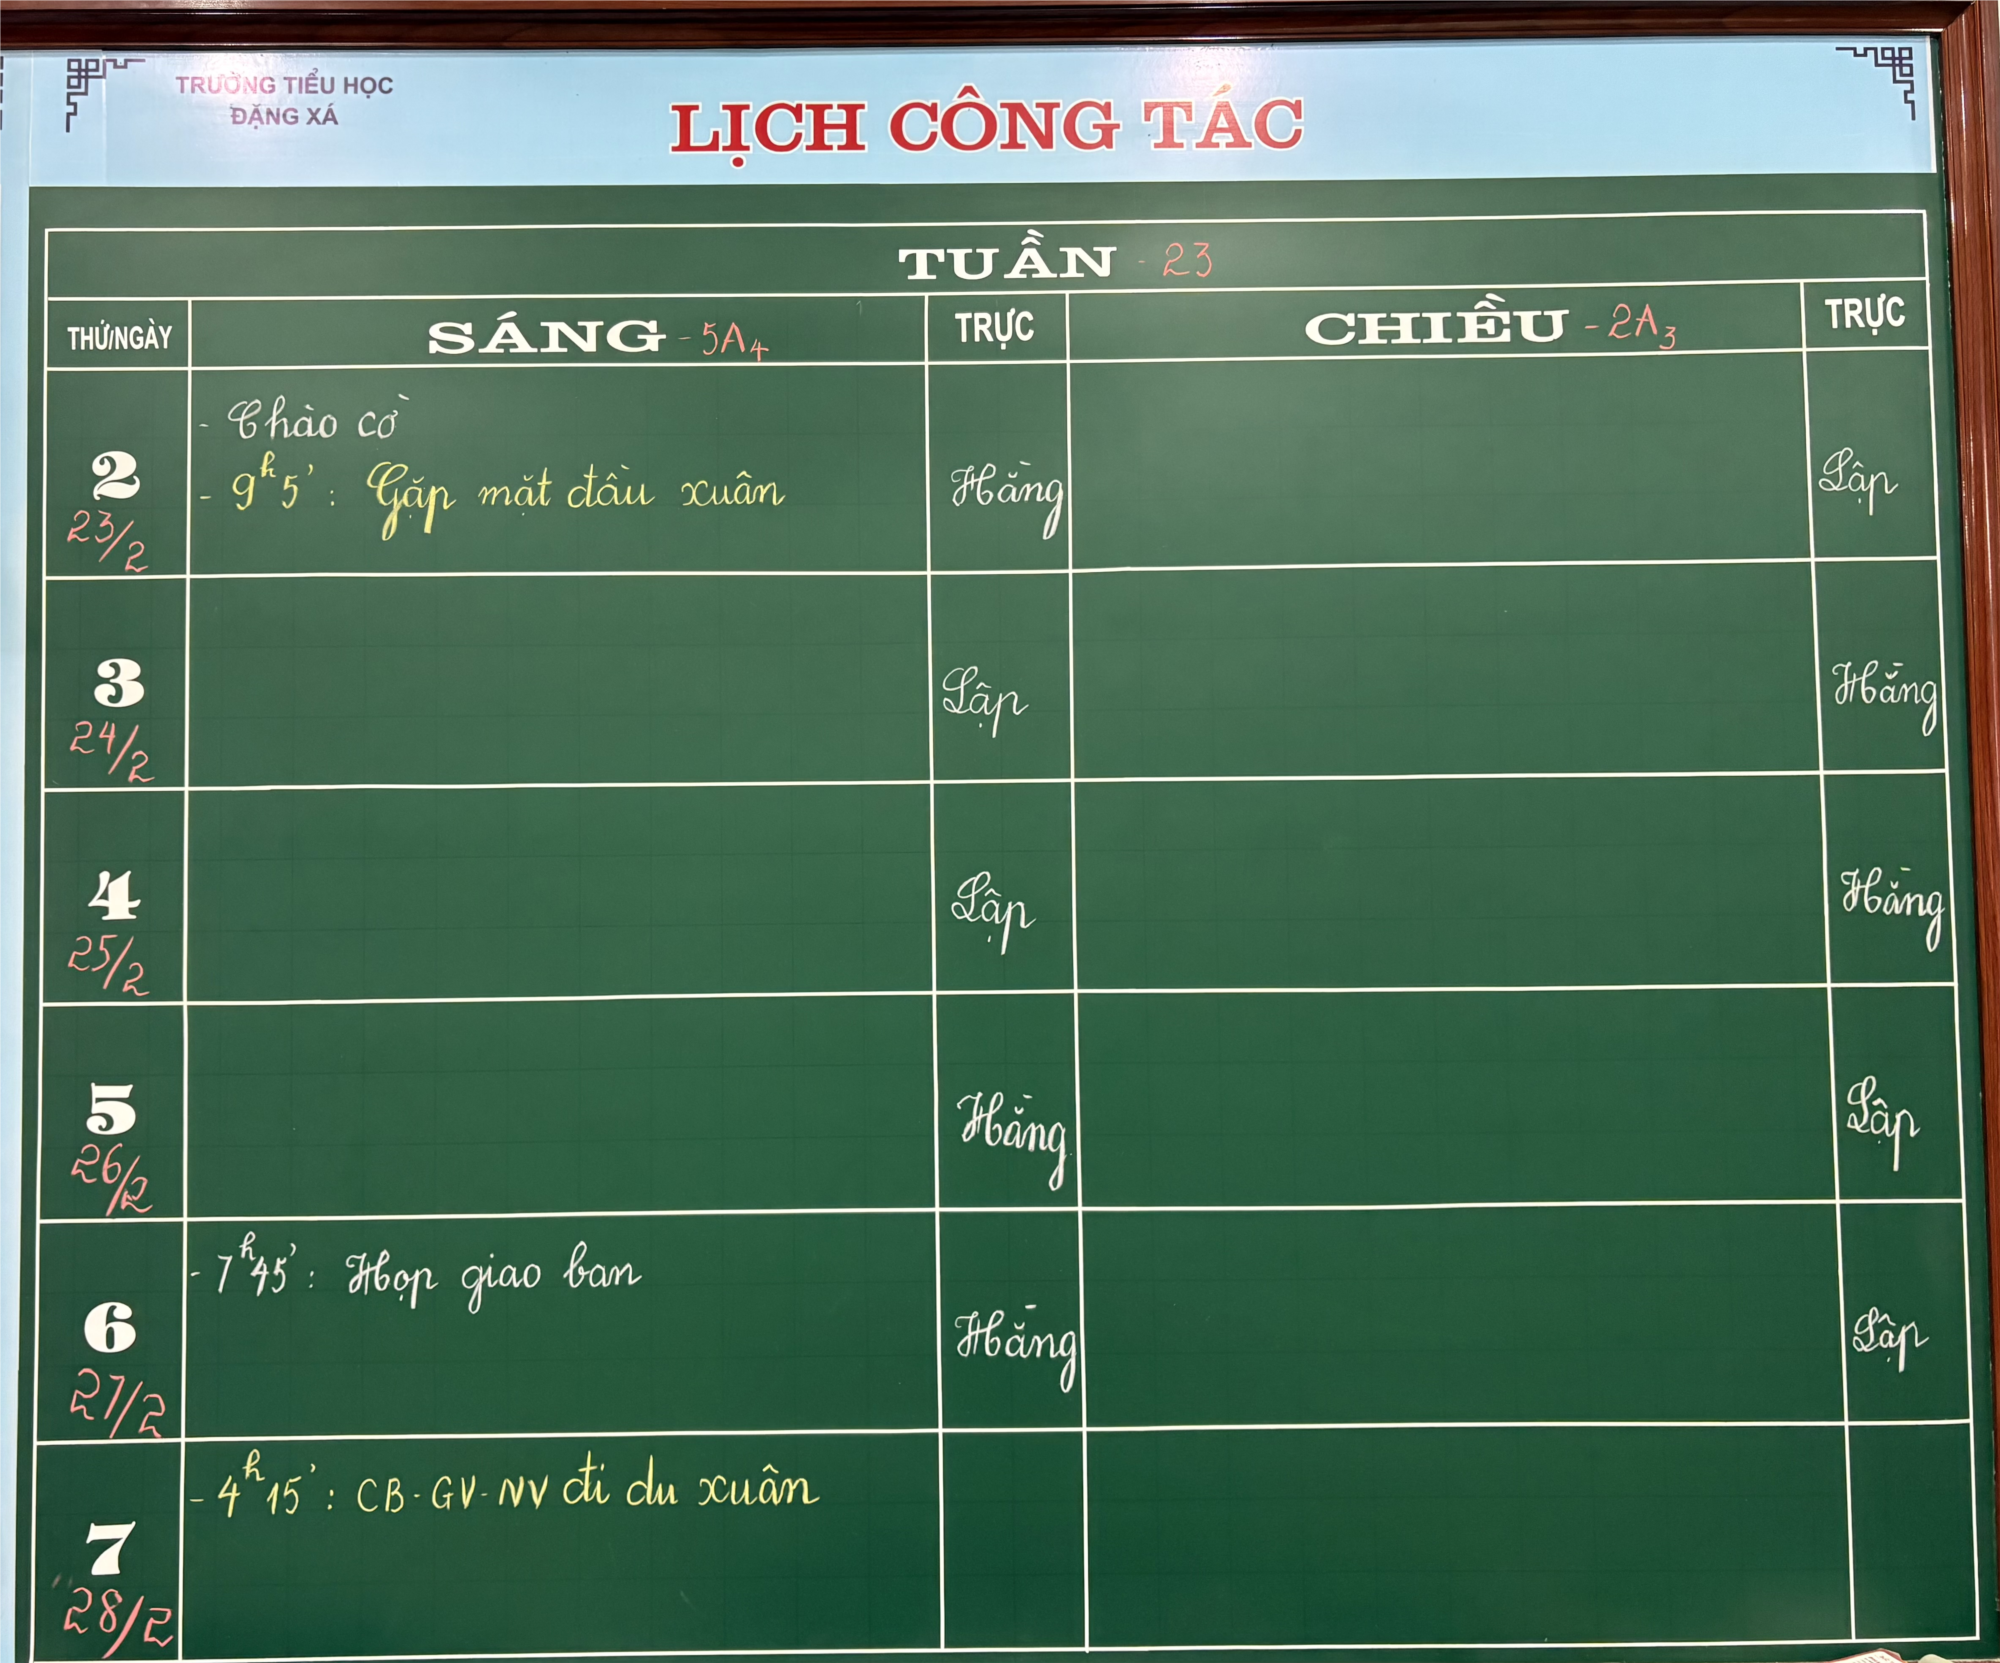 TRƯỜNG TIỂU HỌC
ĐẶNG XÁ
LỊCH CÔNG TÁC
TUẦN - 23
THỨ/NGÀY
SÁNG - 5A4
TRỰC
CHIỀU - 2A3
TRỰC
2
23/2
- Chào cờ
- 9h5' : Gặp mặt đầu xuân
Hằng
Lập
3
24/2
Lập
Hằng
4
25/2
Lập
Hằng
5
26/2
Hằng
Lập
6
27/2
- 7h45' : Họp giao ban
Hằng
Lập
7
28/2
- 4h15' : CB - GV - NV đi du xuân